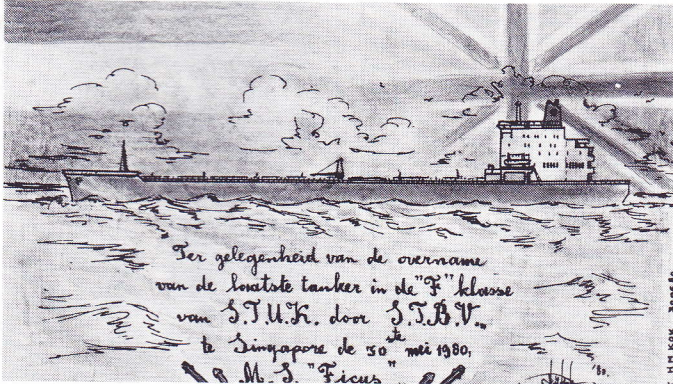 Ter gelegenheid van de overname
van de laatste tanker in de "F" klasse
van S.T.U.K. door S.T.B.V.
te Singapore de 30ste mei 1980,
M.S. "Ficus"
'80.